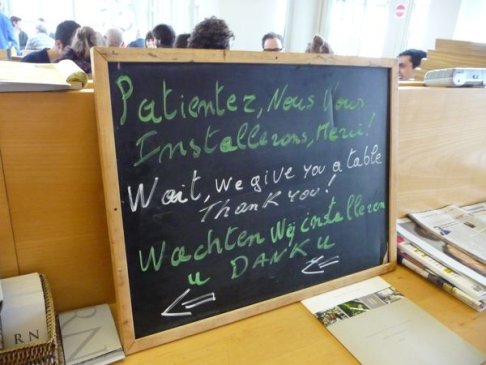 Patientez, Nous Vous
Installerons, Merci!
Wait, we give you a table
Thank you!
Wachten Wij installeren
u DANK u
RN